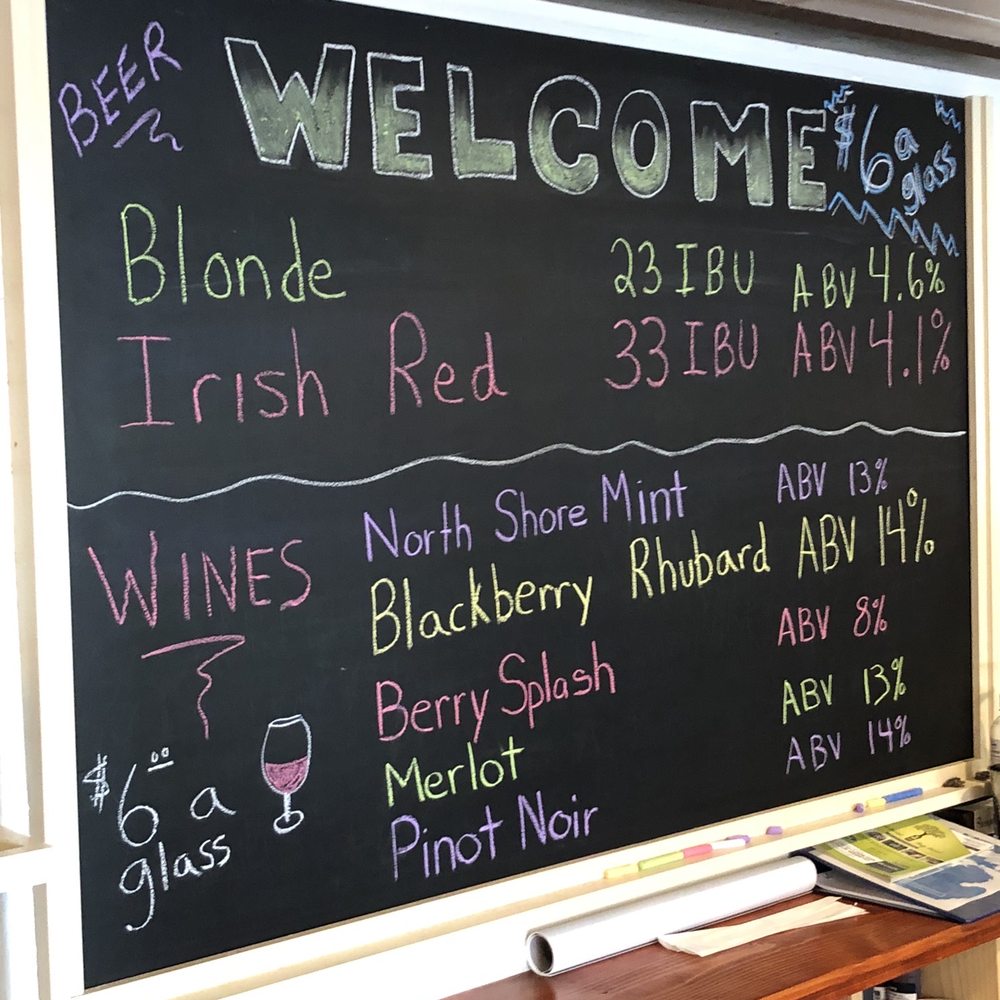 BEER
WELCOME
$6 a
glass
Blonde 23 IBU ABV 4.6%
Irish Red 33 IBU ABV 4.1%
WINES
North Shore Mint ABV 13%
Blackberry Rhubard ABV 14%
Berry Splash ABV 8%
Merlot ABV 13%
Pinot Noir ABV 14%
$6.00 a
glass